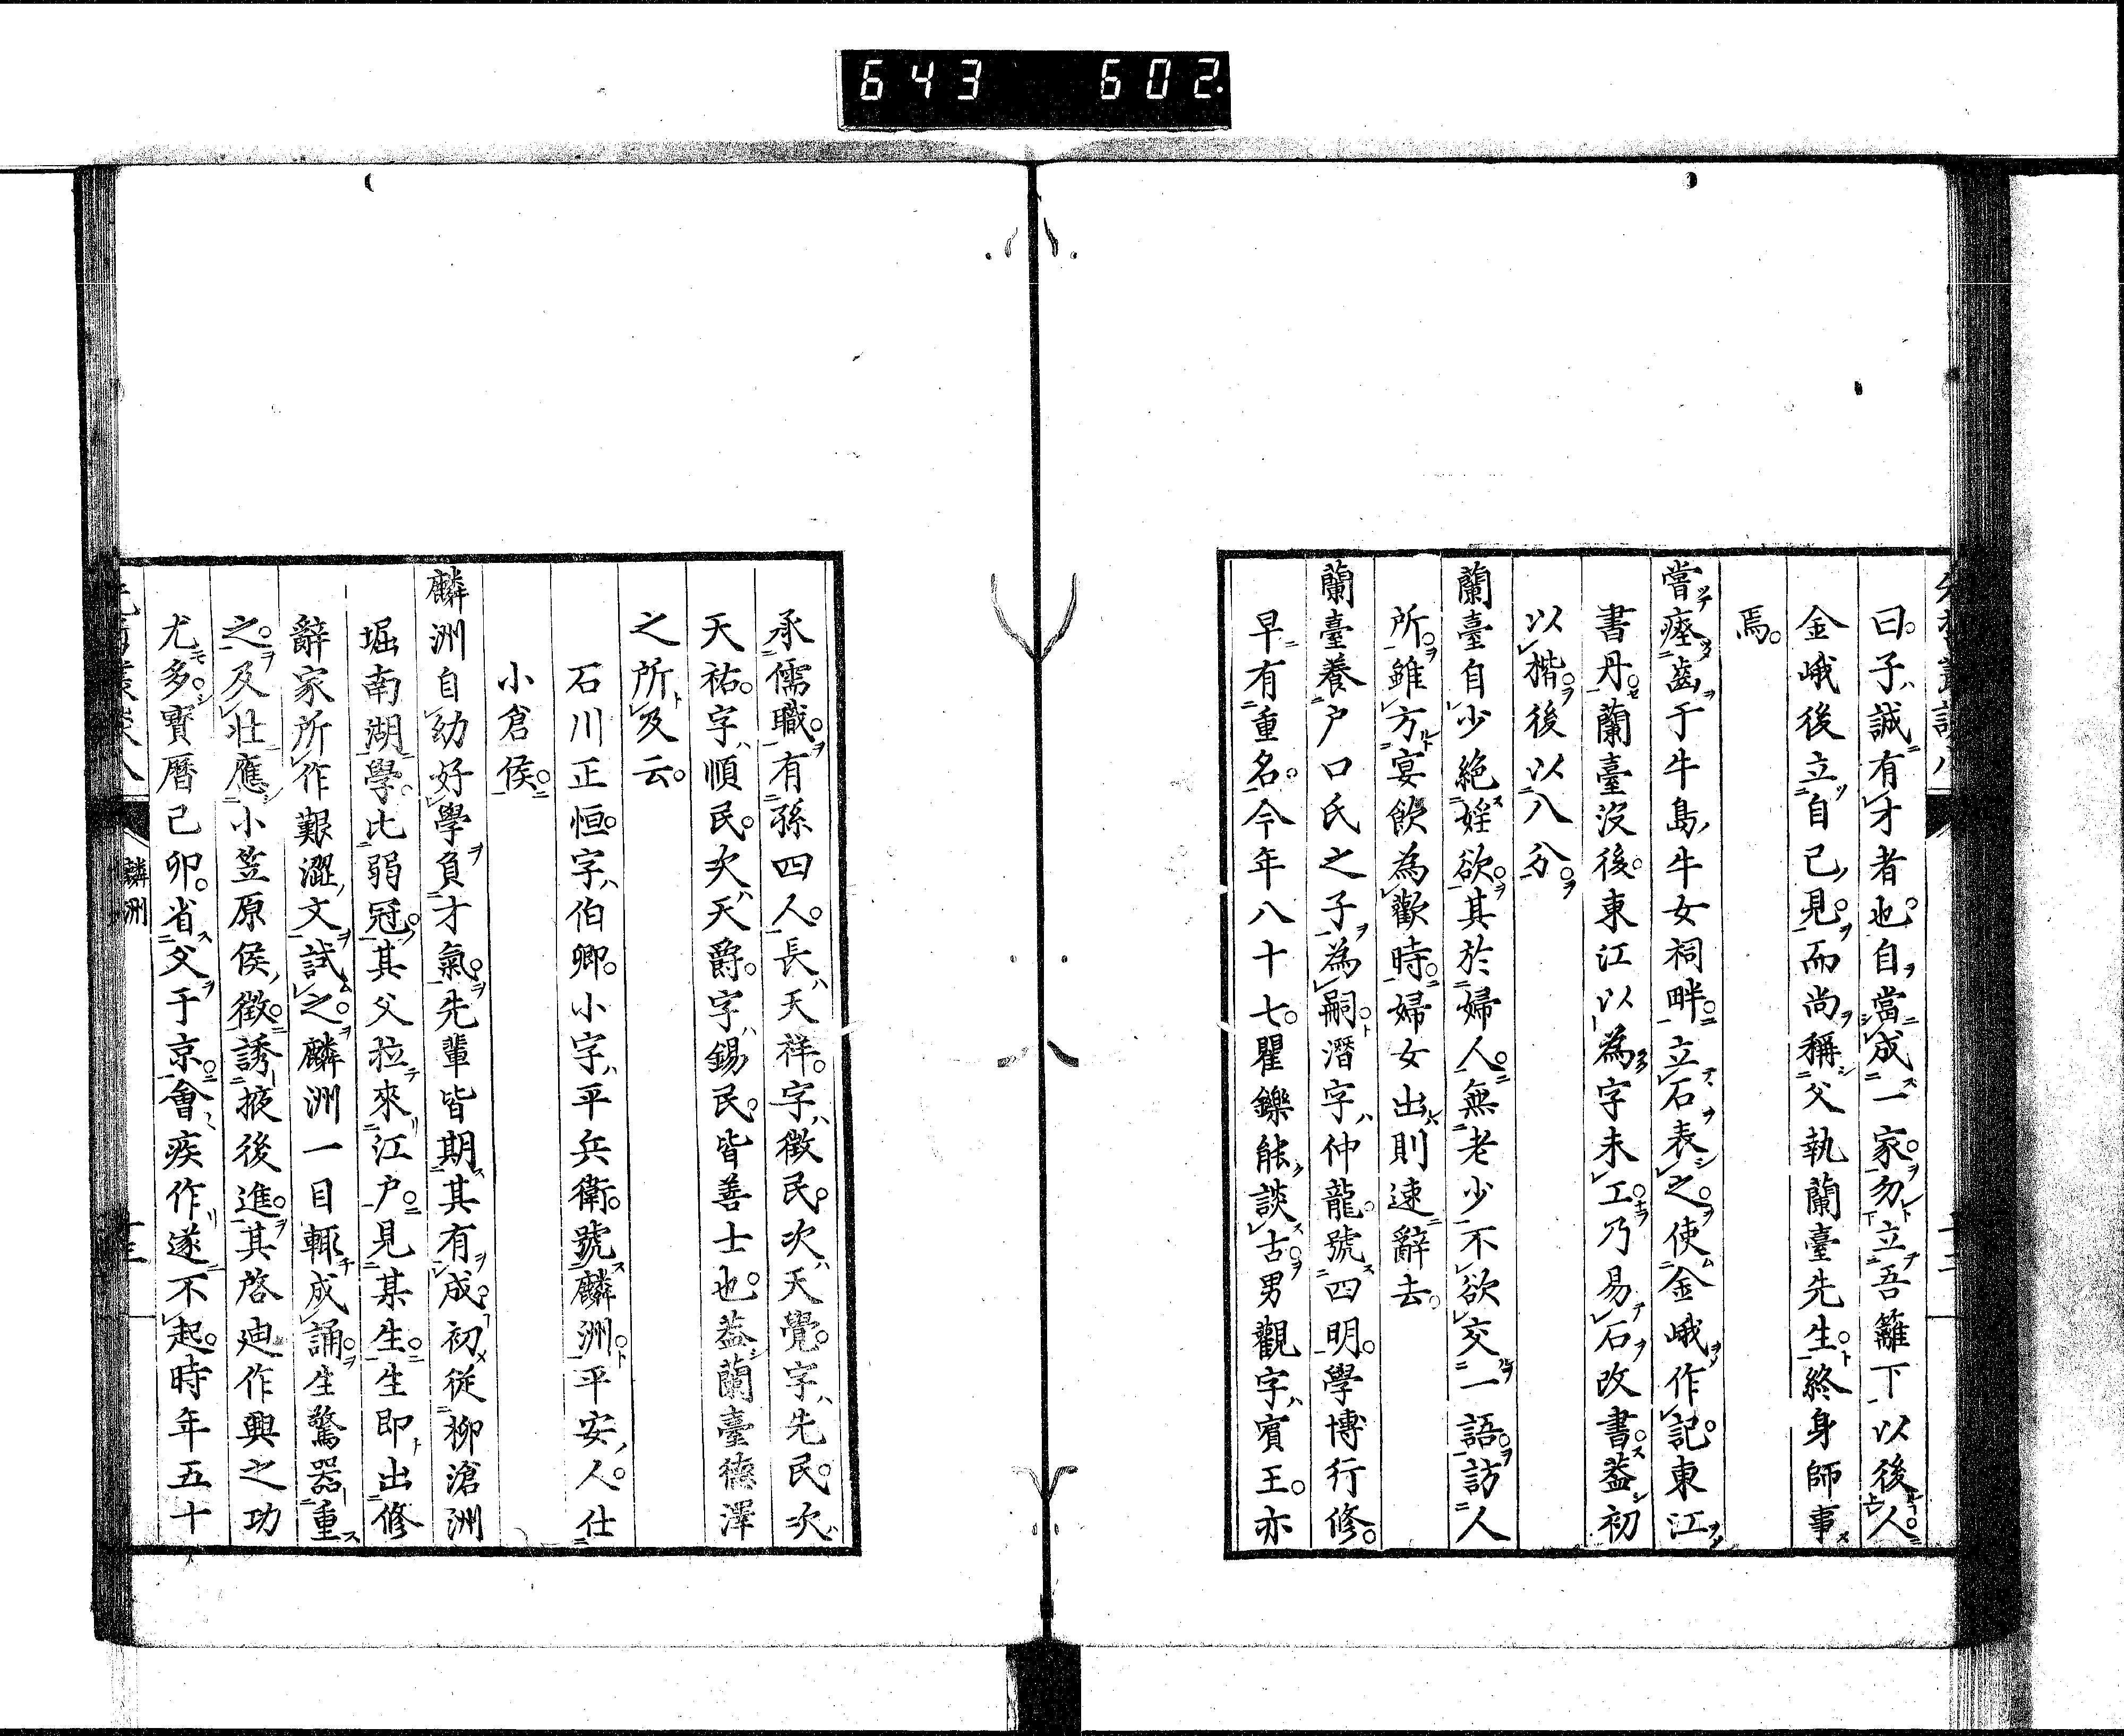 643 602.
曰。子誠有才者也。自當成一家。勿立吾籬下以後人。
金峨後立自己見。而尚稱父執蘭臺先生。終身師事
焉。
嘗瘞齒于牛島牛女祠畔。立石表之。使金峨作記。東江
書丹。蘭臺沒後。東江以為字未工。乃易石改書。蓋初
以楷。後以八分。
蘭臺自少絶婬欲。其於婦人。無老少不欲交一語。訪人
所。雖方宴飲為歡時。婦女出則速辭去。
蘭臺養戶口氏之子為嗣。潛字仲龍。號四明。學博行修。
早有重名。今年八十七。瞿鑠能談古。男觀字賓王。亦
承儒職。有孫四人。長天祥。字徵民。次天覺。字先民。次
天祐。字順民。次天爵。字錫民。皆善士也。蓋蘭臺德澤
之所及云。
石川正恒。字伯卿。小字平兵衛。號麟洲。平安人。仕
小倉侯。
麟洲自幼好學負才氣。先輩皆期其有成。初從柳滄洲
堀南湖學。比弱冠。其父拉來江戶。見某生。生即出修
辭家所作艱澀文試之。麟洲一目輒成誦。生驚器重
之。及壯應小笠原侯徵。誘掖後進。其啓迪作興之功
尤多。寶曆己卯。省父于京。會疾作。遂不起。時年五十
麟洲